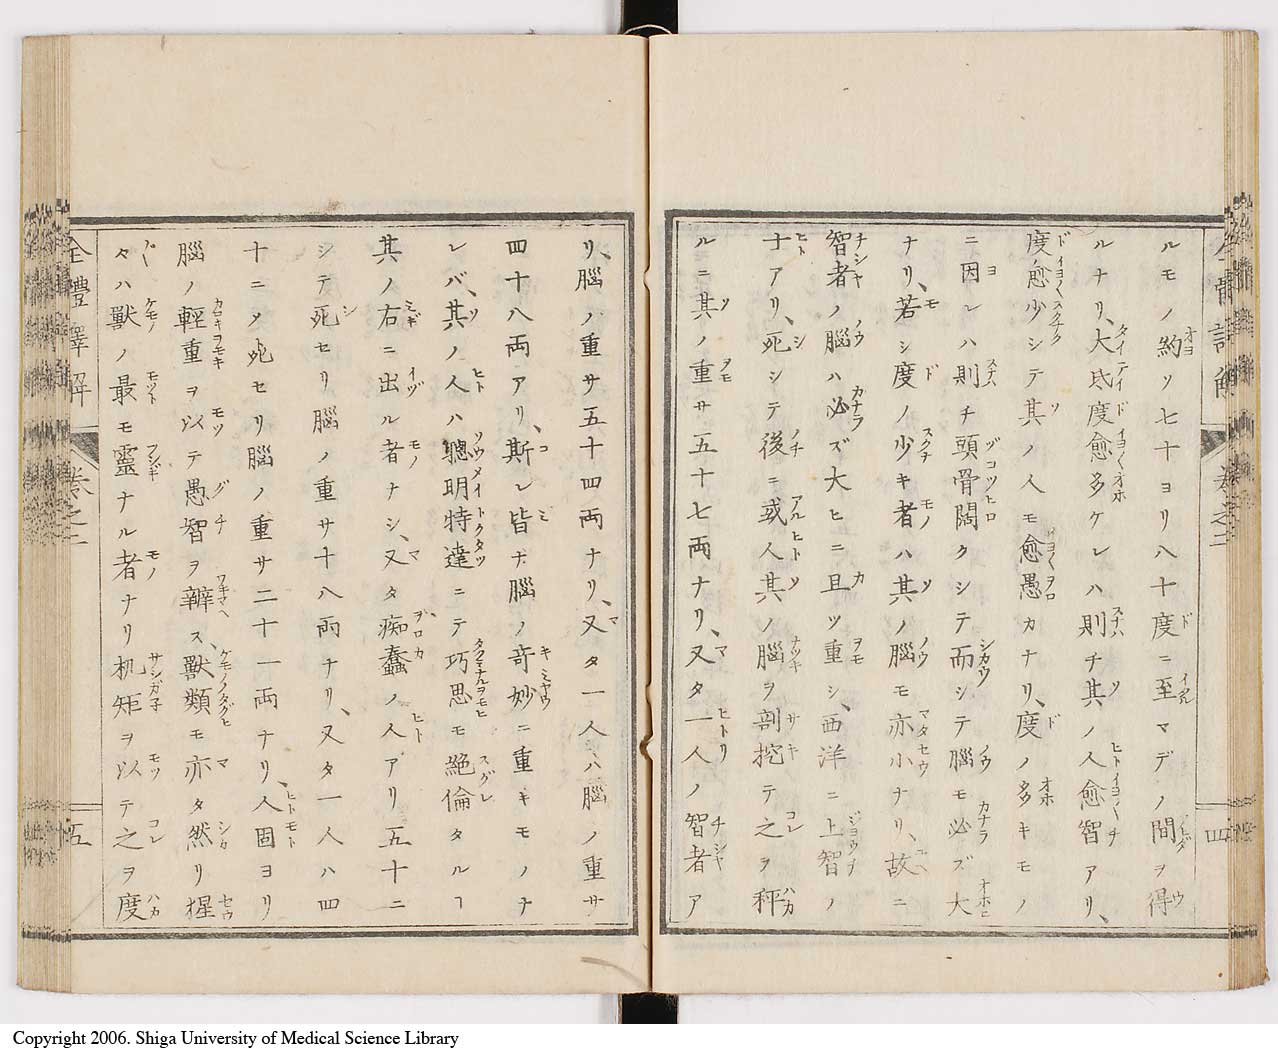 ルモノ約ソ七十ヨリ八十度ニ至マデノ間ヲ得
ルナリ、大氐度愈多ケレハ則チ其ノ人愈智アリ、
度愈少シテ其ノ人モ愈愚カナリ、度ノ多キモノ
ニ因レハ則チ頭骨闊クシテ而シテ腦モ必ズ大
ナリ、若シ度ノ少キ者ハ其ノ腦モ亦小ナリ、故ニ
智者ノ腦ハ必ズ大ヒニ且ツ重シ、西洋ニ上智ノ
士アリ、死シテ後ニ或人其ノ腦ヲ剖挖テ之ヲ秤
ルニ其ノ重サ五十七両ナリ、又タ一人ノ智者ア
リ、腦ノ重サ五十四両ナリ、又タ一人ハ腦ノ重サ
四十八両アリ、斯レ皆ナ腦ノ奇妙ニ重キモノナ
レバ、其ノ人ハ聰明特達ニテ巧思モ絶倫タルヿ
其ノ右ニ出ル者ナシ、又タ痴蠢ノ人アリ五十ニ
シテ死セリ腦ノ重サ十八両ナリ、又タ一人ハ四
十ニメ死セリ腦ノ重サ二十一両ナリ、人固ヨリ
腦ノ輕重ヲ以テ愚智ヲ辧ス、獸類モ亦タ然リ猩
々ハ獸ノ最モ靈ナル者ナリ机矩ヲ以テ之ヲ度
全體譯解 卷之二 五
卷之二 四
Copyright 2006. Shiga University of Medical Science Library